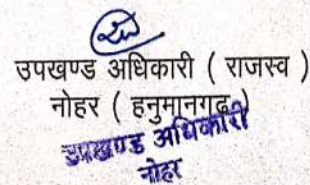 उपखण्ड अधिकारी ( राजस्व )
नोहर ( हनुमानगढ़ )
उपखण्ड अधिकारी
नोहर